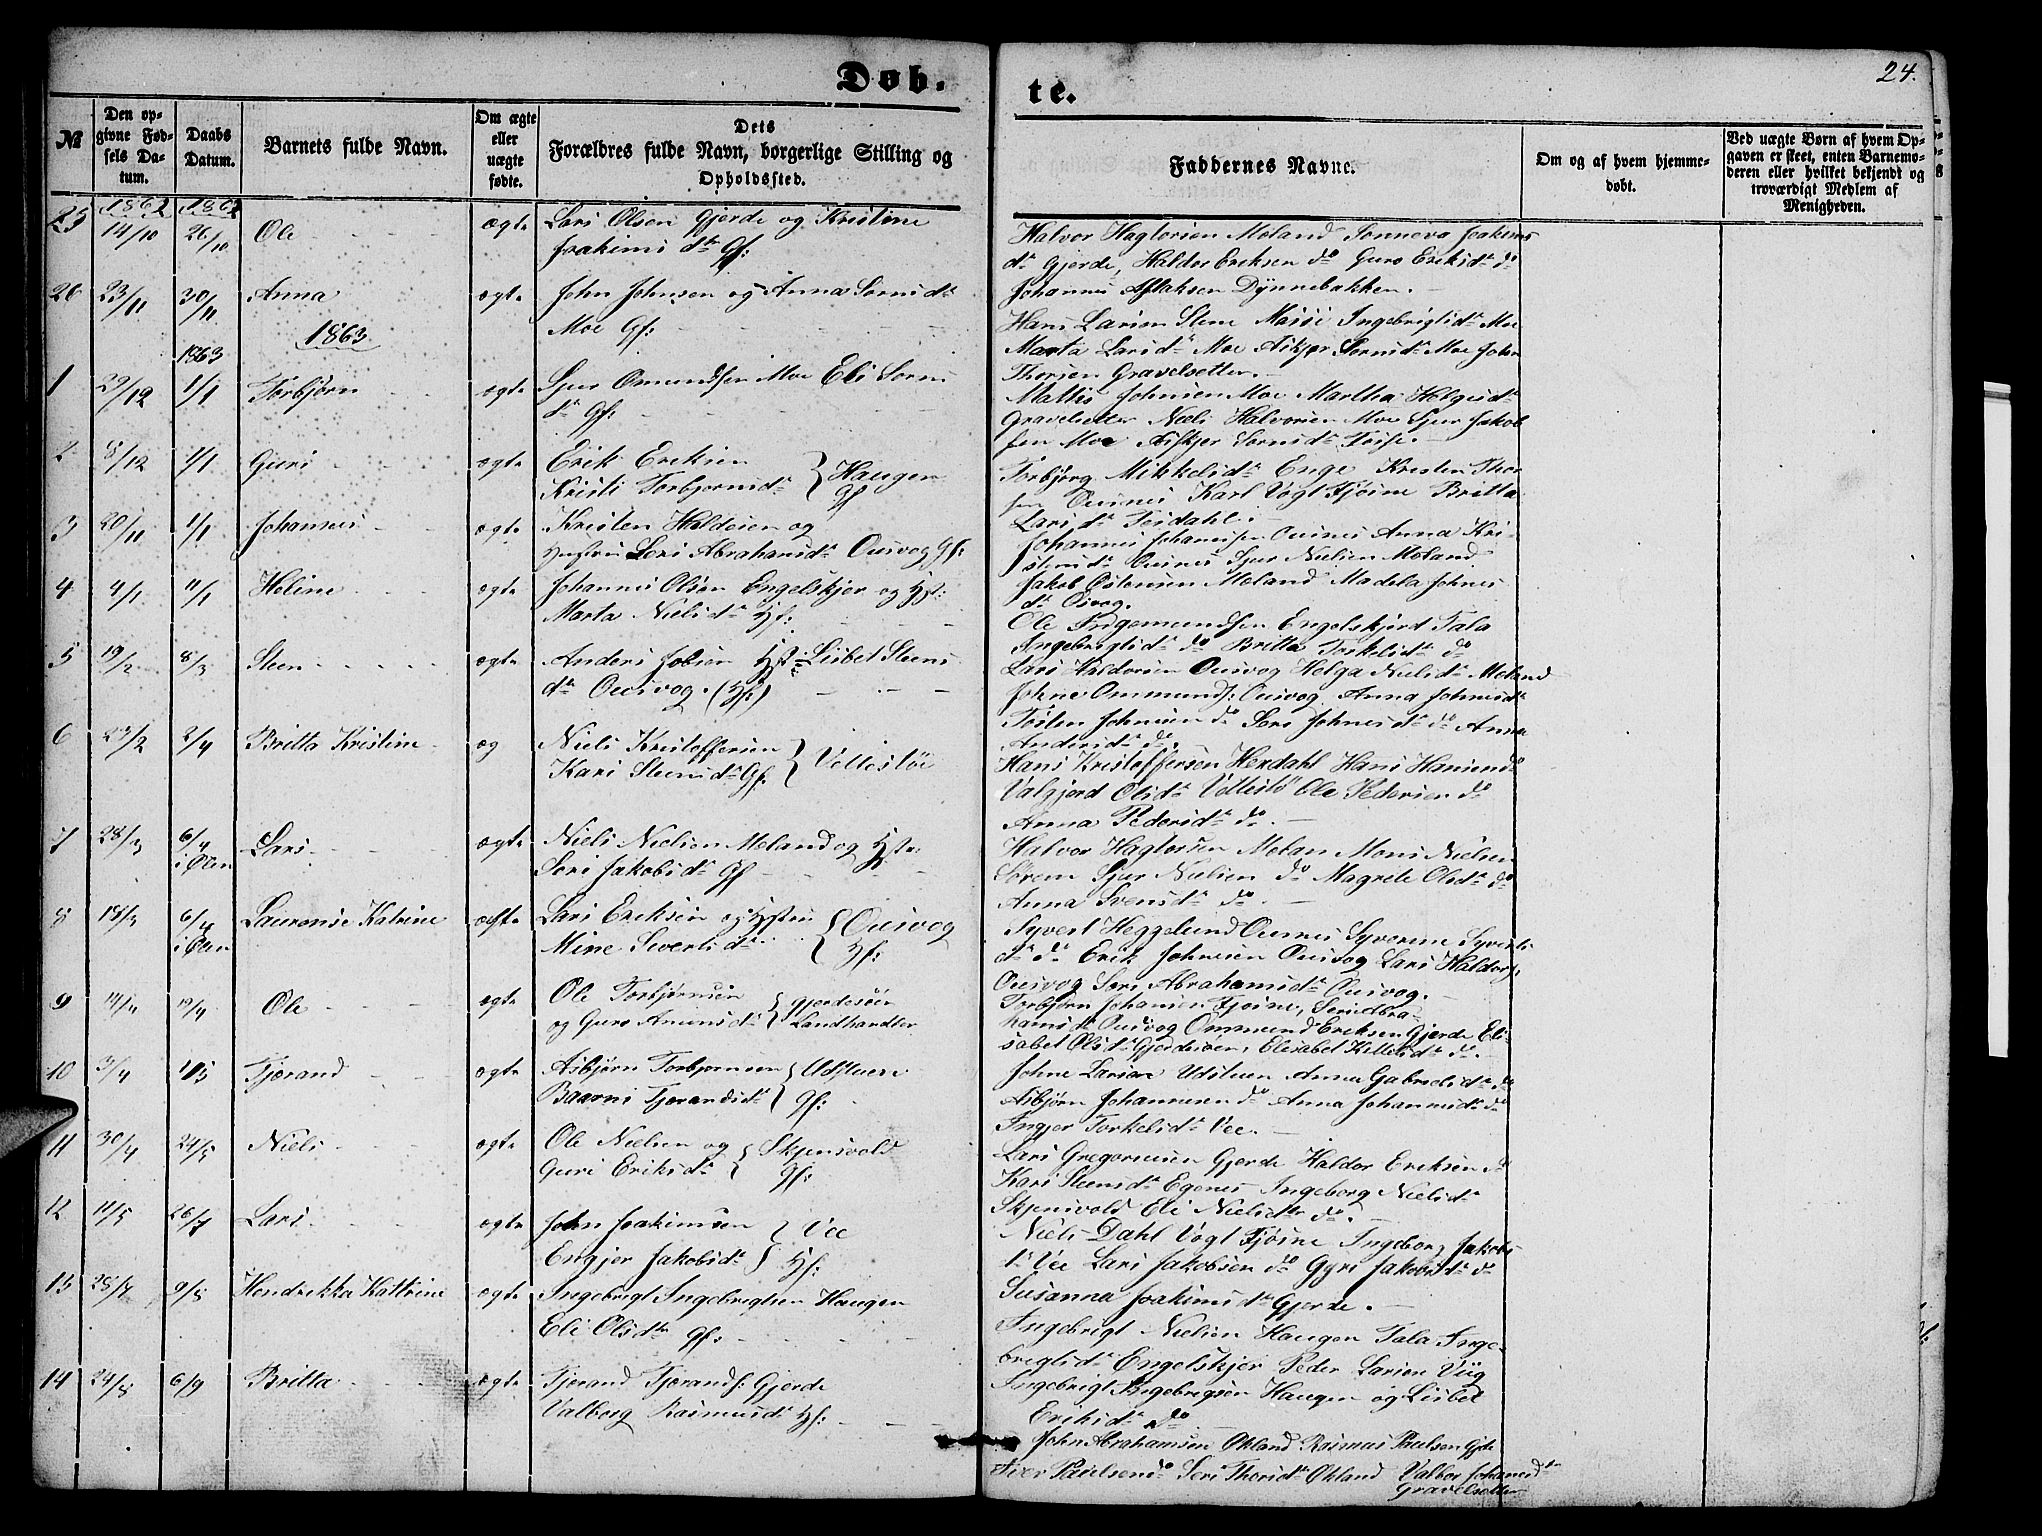 Døb.
te.
24.
№
Den op-
givne Fød-
sels Da-
tum.
Daabs
Datum.
Barnets fulde Navn.
Om ægte
eller
uægte
fødte.
Dets
Forældres fulde Navn, borgerlige Stilling og
Opholdssted.
Faddernes Navne.
Om og af hvem hjemme-
døbt.
Ved uægte Børn af hvem Op-
gaven er skeet, enten Barnemo-
deren eller hvilket bekjendt og
troværdigt Medlem af
Menigheden.
1862 1862
25 14/10 26/10 Ole ægte Lars Olsen Gjerde og Kristine
Joakims dr Gf:
Halvor Hagtorsen Moland Sonneva Joakims
dr Gjerde, Haldor Eriksen do Guro Eriksdr do
Johannes Aslaksen Dynnebakken.
26 23/11 30/11 Anna ægte John Johnsen og Anna Sørensdr
Moe Gf:
Hans Larsen Stene Ingebrigtsdr Moe
Marta Larsdr Moe Askjer Sørensdr Moe John
Thorsen Gravelsetter.
1863
1863
1 29/12 1/1 Torbjørn ægte Sjur Omundsen Moe Eli Sørens
dr Gf:
Mattis Johnsen Moe Martha Helgesdr
Gravelsetter Niels Halvorsen Moe Sjur Jakob
sen Moe Askjer Sørensdr
2 8/12 1/1 Guri ægte Erik Eriksen
Kristi Torbjørnsdr } Haugen
Gf
Torbjørg Mikkelsdr Enge Kristen Thor
sen Ousnes Karl Vogt Fjøsne Britta
Larsdr Tesdahl.
3 20/11 1/1 Johannes ægte Kristen Haldosen og
Hustru Seri Abrahamsdr Ousvog Gf:
Johannes Johannesen Ousnes Anna Kri-
stensdr Ousnes Sjur Nielsen Moland
4 4/1 11/1 Heline ægte Johannes Olsen Engelskjer og Hst:
Marta Nielsdr Hf:
Jakob Ostensen Moland Madela Johnes
dr Osvog.
Ole Ingemundsen Engelskjerd Tala
Ingebrigtsdr do Britta Torkelsdr do
5 19/2 8/3 Steen ægte Anders Jobsen Hst: Lisbet Steens
dr Ousvog. (Hf)
Lars Haldorsen Ousvog Helga Nielsdr Moland
Johne Ommunds: Ousvog Anna Johnesdr
Tosten Johnsen do Seri Johnesdr do Anna
Andersdr do.
6 23/2 2/4 Britta Kristine æg Niels Kristoffersen
Kari Steensdr Gf: } Vettestøe
Hans Kristoffersen Herdahl Hans Hansen do
Valgjerd Olsdr Vettestø Ole Pedersen do
Anna Pedersdr do.
7 28/3 6/4 i Ølen Lars ægte Niels Nielsen Moland og Hstr:
Seri Jakobsdr Gf
Halvor Hagtorsen Molan Mons Nielsen
Sørem Sjur Nielsen do Magrete Olsdr do
Anna Svensdr do.
8 18/3 6/4 i Ølen Laurense Katrine ægte Lars Eriksen og Hstru
Mine Sivertsdr } Ousvog
Hf:
Syvert Heggelund Ousnes Syverine Syverts
dr do Erik Johnsen Ousvog Lars Haldors:
Ousvog Seri Abrahamsdr Ousvog.
9 14/4 19/4 Ole ægte Ole Torbjørnsen
og Guro Amunsdr } Gjerdesøen
Landhandler
Torbjørn Johansen Fjøsne, Seri Abra-
hamsdr Ousvog Ommund Eriksen Gjerde Eli-
sabet Olsdr Gjerdesøen, Elisabet Kittelsdr do.
10 3/4 1/5 Tjerand ægte Asbjørn Torbjørnsen
Baarni Tjerandsdr } Udstuen
Gf:
Johne Larsen Udstuen Anna Gabrielsdr do
Asbjørn Johannesen do Anna Johannesdr do
Ingjer Torkelsdr Vee.
11 30/4 24/5 Niels ægte Ole Nielsen og
Guri Eriksdr } Skjensvold
Gf:
Lars Gregoriusen Gjerde Haldor Eriksen do
Kari Steensdr Egenes Ingeborg Nielsdr
Skjensvold Eli Nielsdtr do.
12 11/5 26/7 Lars ægte John Joakimsen
Engjer Jakobsdr } Vee
Hf:
Niels Dahl Vogt Fjøsne Ingeborg Jakobs
dr Vee Lars Jakobsen do Gyri Jakobsdr do
Susanna Joakimsdr Gjerde.
13 28/7 9/8 Hendrikka Kattrine ægte Ingebrigt Ingebrigtsen Haugen
Eli Olsdtr Gf:
Ingebrigt Nielsen Haugen Tala Inge-
brigtsdr Engelskjer Peder Larsen Viig
Ingebrigt Ingebrigsen Haugen og Lisbet
Eriksdr do
14 24/8 6/9 Britta ægte Tjerand Tjerands: Gjerde
Valborg Rasmusdr Hf:
John Abrahamsen Økland Rasmus Paulsen Gjde
Iver Paulsen do Seri Thorsdr Økland Valbor Johanesdr
Gravelsetter